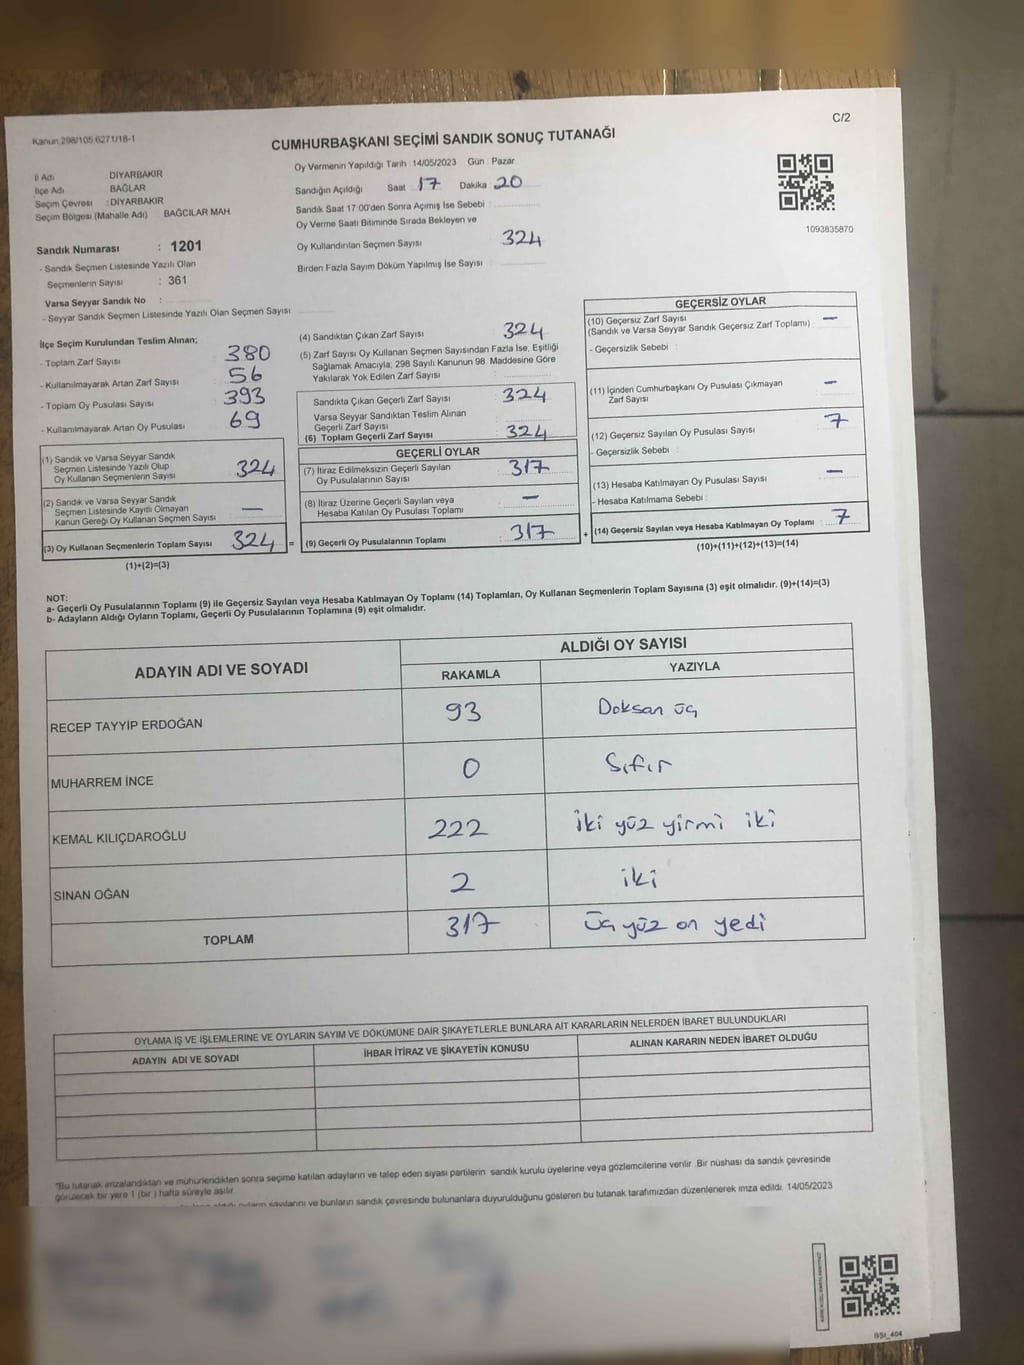 Kanun 298/105 6271/18-1
C/2
CUMHURBAŞKANI SEÇİMİ SANDIK SONUÇ TUTANAĞI
İl Adı DİYARBAKIR
İlçe Adı : BAĞLAR
Seçim Çevresi : DİYARBAKIR
Seçim Bölgesi (Mahalle Adı) : BAĞCILAR MAH.
Sandık Numarası : 1201
- Sandık Seçmen Listesinde Yazılı Olan
Seçmenlerin Sayısı : 361
Varsa Seyyar Sandık No :
- Seyyar Sandık Seçmen Listesinde Yazılı Olan Seçmen Sayısı
Oy Vermenin Yapıldığı Tarih : 14/05/2023 Gün : Pazar
Sandığın Açıldığı Saat 17 Dakika 20
Sandık Saat 17:00'den Sonra Açımış İse Sebebi :
Oy Verme Saati Bitiminde Sırada Bekleyen ve
Oy Kullandırılan Seçmen Sayısı 324
Birden Fazla Sayım Döküm Yapılmış İse Sayısı :
1093835870
İlçe Seçim Kurulundan Teslim Alınan;
- Toplam Zarf Sayısı 380
- Kullanılmayarak Artan Zarf Sayısı 56
- Toplam Oy Pusulası Sayısı 393
- Kullanılmayarak Artan Oy Pusulası 69
(1) Sandık ve Varsa Seyyar Sandık
Seçmen Listesinde Yazılı Olup
Oy Kullanan Seçmenlerin Sayısı 324
(2) Sandık ve Varsa Seyyar Sandık
Seçmen Listesinde Kayıtlı Olmayan
Kanun Gereği Oy Kullanan Seçmen Sayısı —
(3) Oy Kullanan Seçmenlerin Toplam Sayısı 324 =
(1)+(2)=(3)
(4) Sandıktan Çıkan Zarf Sayısı 324
(5) Zarf Sayısı Oy Kullanan Seçmen Sayısından Fazla İse, Eşitliği
Sağlamak Amacıyla; 298 Sayılı Kanunun 98. Maddesine Göre
Yakılarak Yok Edilen Zarf Sayısı
Sandıkta Çıkan Geçerli Zarf Sayısı 324
Varsa Seyyar Sandıktan Teslim Alınan
Geçerli Zarf Sayısı
(6) Toplam Geçerli Zarf Sayısı 324
GEÇERLİ OYLAR
(7) İtiraz Edilmeksizin Geçerli Sayılan
Oy Pusulasının Sayısı 317
(8) İtiraz Üzerine Geçerli Sayılan veya
Hesaba Katılan Oy Pusulası Toplamı —
(9) Geçerli Oy Pusulalarının Toplamı 317 +
GEÇERSİZ OYLAR
(10) Geçersiz Zarf Sayısı —
(Sandık ve Varsa Seyyar Sandık Geçersiz Zarf Toplamı)
- Geçersizlik Sebebi :
(11) İçinden Cumhurbaşkanı Oy Pusulası Çıkmayan —
Zarf Sayısı
(12) Geçersiz Sayılan Oy Pusulası Sayısı 7
- Geçersizlik Sebebi
(13) Hesaba Katılmayan Oy Pusulası Sayısı —
- Hesaba Katılmama Sebebi :
(14) Geçersiz Sayılan veya Hesaba Katılmayan Oy Toplamı : 7
(10)+(11)+(12)+(13)=(14)
NOT:
a- Geçerli Oy Pusulalarının Toplamı (9) ile Geçersiz Sayılan veya Hesaba Katılmayan Oy Toplamı (14) Toplamları, Oy Kullanan Seçmenlerin Toplam Sayısına (3) eşit olmalıdır. (9)+(14)=(3)
b- Adayların Aldığı Oyların Toplamı, Geçerli Oy Pusulalarının Toplamına (9) eşit olmalıdır.
ADAYIN ADI VE SOYADI
ALDIĞI OY SAYISI
RAKAMLA YAZIYLA
RECEP TAYYİP ERDOĞAN 93 Doksan üç
MUHARREM İNCE 0 Sıfır
KEMAL KILIÇDAROĞLU 222 İki yüz yirmi iki
SİNAN OĞAN 2 iki
TOPLAM 317 Üç yüz on yedi
OYLAMA İŞ VE İŞLEMLERİNE VE OYLARIN SAYIM VE DÖKÜMÜNE DAİR ŞİKAYETLERLE BUNLARA AİT KARARLARIN NELERDEN İBARET BULUNDUKLARI
ADAYIN ADI VE SOYADI İHBAR İTİRAZ VE ŞİKAYETİN KONUSU ALINAN KARARIN NEDEN İBARET OLDUĞU
*Bu tutanak imzalandıktan ve mühürlendikten sonra seçime katılan adayların ve talep eden siyasi partilerin sandık kurulu üyelerine veya gözlemcilerine verilir. Bir nüshası da sandık çevresinde
görülecek bir yere 1 (bir ) hafta süreyle asılır.
sayılarını ve bunların sandık çevresinde bulunanlara duyurulduğunu gösteren bu tutanak tarafımızdan düzenlenerek imza edildi. 14/05/2023
BSI_404